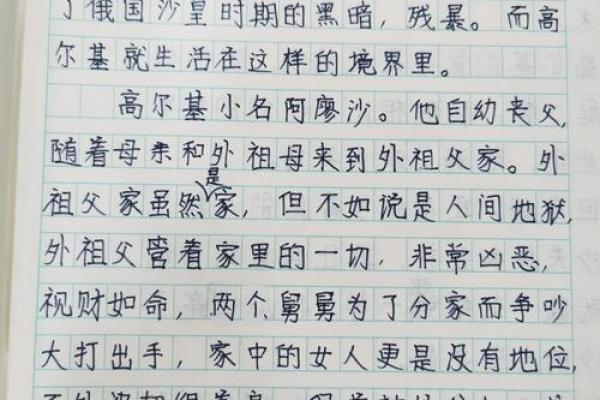 了俄国沙皇时期的黑暗，残暴。而高
尔基就生活在这样的境界里。
高尔基小名阿廖沙。他自幼丧父，
随着母亲和外祖母来到外祖父家。外
祖父家虽然是家，但不如说是人间地狱，
外祖父管着家里的一切，非常凶恶，
视财如命，两个舅舅为了分家而争吵
大打出手，家中的女人更是没有地位，